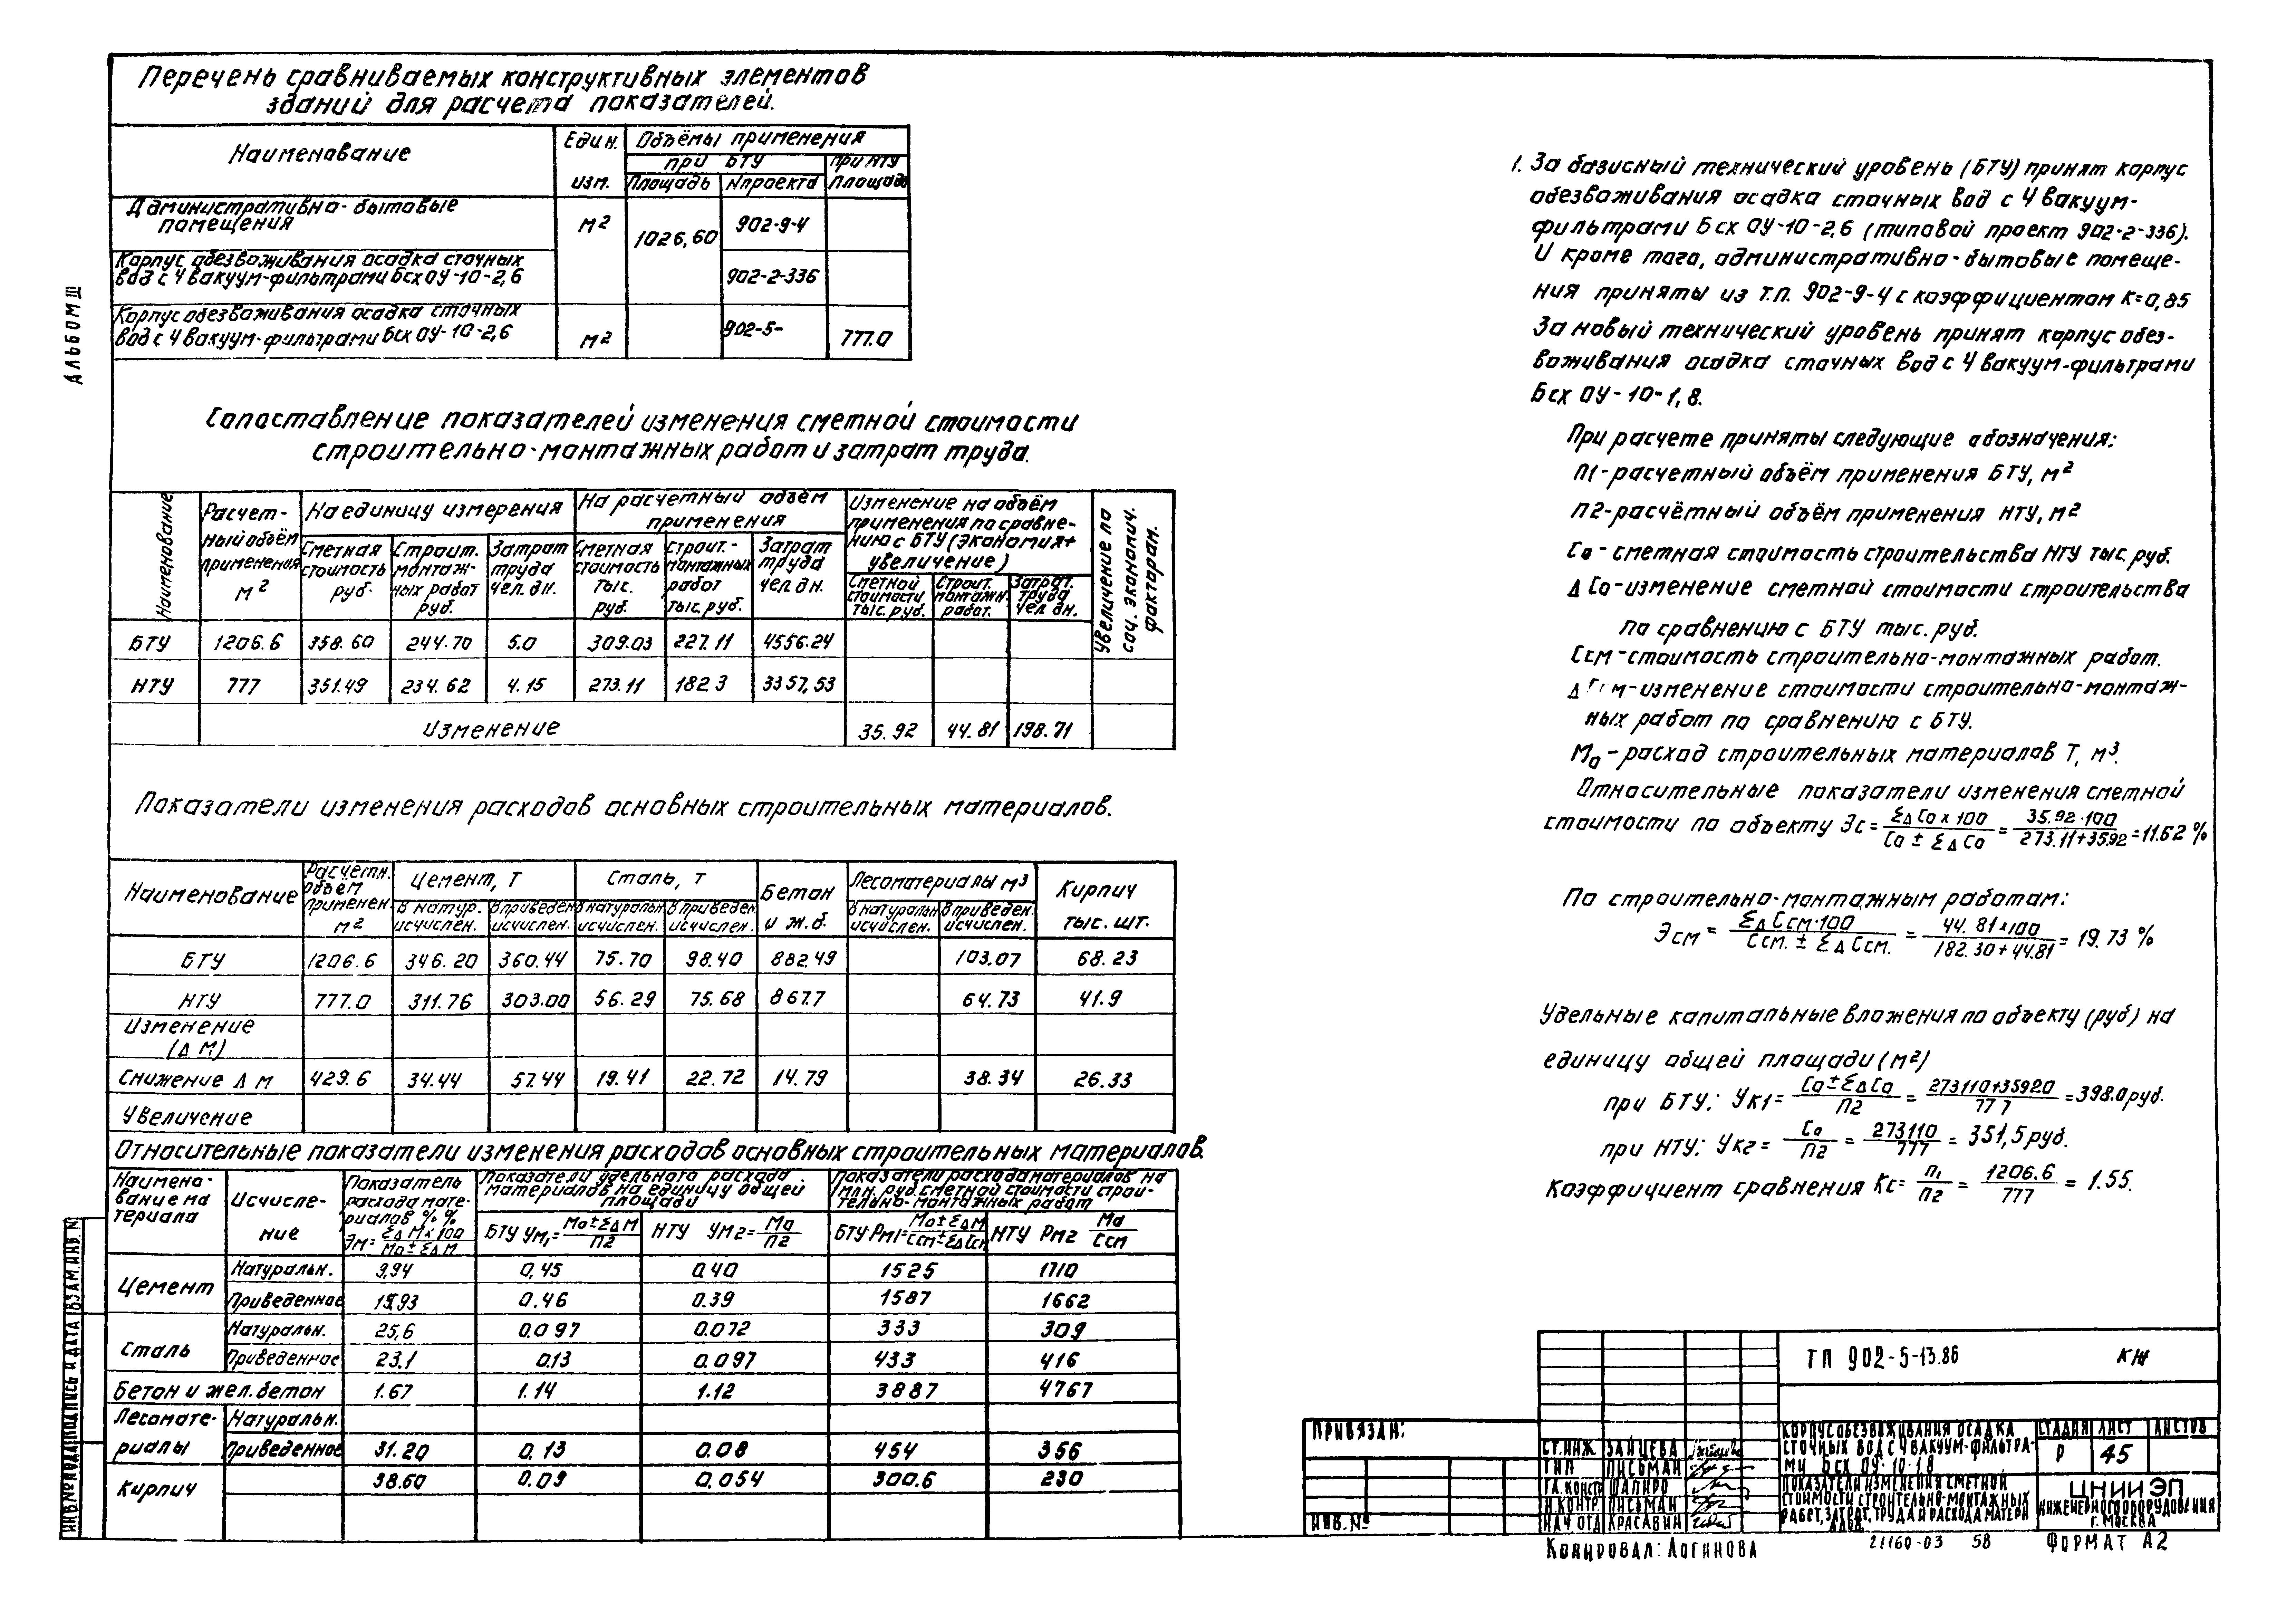 Перечень сравниваемых конструктивных элементов
зданий для расчета показателей.
Наименование
Един. изм.
Объёмы применения
при БТУ
при НТУ
Площадь
N проекта
Площадь
Административно-бытовые
помещения
м²
1026,60
902-9-4
Корпус обезвоживания осадка сточных
вод с 4 вакуум-фильтрами Бсх ОУ-10-2,6
902-2-336
Корпус обезвоживания осадка сточных
вод с 4 вакуум-фильтрами Бсх ОУ-10-2,6
м²
902-5-
777.0
АЛЬБОМ III
Сопоставление показателей изменения сметной стоимости
строительно-монтажных работ и затрат труда.
Наименование
Расчет-
ный объём
применения
м²
На единицу измерения
На расчетный объём
применения
Изменение на объём
применения по сравне-
нию с БТУ (экономия+
увеличение)
Увеличение по
соц. экономич.
факторам.
Сметная
стоимость
руб.
Строит.
монтаж-
ных работ
руб.
Затрат
труда
чел. дн.
Сметная
стоимость
тыс.
руб.
Строит.-
монтажных
работ
тыс. руб.
Затрат
труда
чел дн.
Сметной
стоимости
тыс. руб.
Строит.
монтажн.
работ.
Затрат.
труда
чел дн.
БТУ 1206.6 358.60 244.70 5.0 309.03 227.11 4556.24
НТУ 777 351.49 234.62 4.15 273.11 182.3 3357,53
Изменение 35.92 44.81 198.71
Показатели изменения расходов основных строительных материалов.
Наименование
Расчётн.
объем
применен.
м²
Цемент, Т
Сталь, Т
Бетон
и ж.б.
Лесоматериалы м³
Кирпич
тыс. шт.
В натур.
исчислен.
В приведен
исчислен.
В натуральн
исчислен.
В приведен.
исчислен.
В натуральн
исчислен.
В приведен.
исчислен.
БТУ 1206.6 346.20 360.44 75.70 98.40 882.49 103.07 68.23
НТУ 777.0 311.76 303.00 56.29 75.68 867.7 64.73 41.9
Изменение
(Δ М)
Снижение Δ м 429.6 34.44 57.44 19.41 22.72 14.79 38.34 26.33
Увеличение
Относительные показатели изменения расходов основных строительных материалов.
Наимено-
вание ма
териала
Исчисле-
ние
Показатель
расхода мате-
риалов %%
Эм= ΣΔМ×100 / Мо±ΣΔМ
Показатели удельного расхода
материалов на единицу общей
площади
БТУ Ум₁= Мо±ΣΔМ / П2
НТУ Ум2= Мо / П2
Показатели расхода материалов на
1 млн. руб. сметной стоимости строи-
тельно-монтажных работ
БТУ Рм1= Мо±ΣΔМ / Ссм±ΣΔСсм
НТУ Рм2 Мо / Ссм
Цемент Натуральн. 9,94 0,45 0.40 1525 1710
Приведенное 15,93 0.46 0.39 1587 1662
Сталь Натуральн. 25,6 0.097 0.072 333 309
Приведенное 23,1 0.13 0.097 433 416
Бетон и жел. бетон 1.67 1.14 1.12 3887 4767
Лесомате-
риалы Натуральн.
Приведенное 31.20 0.13 0.08 454 356
Кирпич 38.60 0.09 0,054 300.6 230
ИНВ.№ ПОДЛ. ПОДПИСЬ И ДАТА ВЗАМ.ИНВ.N
1. За базисный технический уровень (БТУ) принят корпус
обезвоживания осадка сточных вод с 4 вакуум-
фильтрами Бсх ОУ-10-2,6 (типовой проект 902-2-336).
И кроме того, административно-бытовые помеще-
ния приняты из т.п. 902-9-4 с коэффициентом К=0,85
За новый технический уровень принят корпус обез-
воживания осадка сточных вод с 4 вакуум-фильтрами
Бсх ОУ-10-1,8.
При расчете приняты следующие обозначения:
П1-расчетный объём применения БТУ, м²
П2-расчётный объём применения НТУ, м²
Со-сметная стоимость строительства НТУ тыс. руб.
Δ Со-изменение сметной стоимости строительства
по сравнению с БТУ тыс. руб.
Ссм-стоимость строительно-монтажных работ.
Δ Ссм-изменение стоимости строительно-монтаж-
ных работ по сравнению с БТУ.
Мо-расход строительных материалов Т, м³.
Относительные показатели изменения сметной
стоимости по объекту Эс= ΣΔСо×100 / Со±ΣΔСо = 35.92·100 / 273.11+35.92 =11.62 %
По строительно-монтажным работам:
Эсм= ΣΔСсм·100 / Ссм.±ΣΔСсм. = 44.81×100 / 182.30+44.81 = 19.73 %
Удельные капитальные вложения по объекту (руб) на
единицу общей площади (м²)
при БТУ: Ук1= Со±ΣΔСо / П2 = 273110+35920 / 777 =398.0 руб.
при НТУ: Ук2= Со / П2 = 273110 / 777 = 351,5 руб.
Коэффициент сравнения Кс= П1 / П2 = 1206.6 / 777 = 1.55.
ПРИВЯЗАН:
ИНВ.№
СТ.ИНЖ ЗАЙЦЕВА
ГИП ПИСЬМАН
ГЛ.КОНСТР ШАПИРО
Н.КОНТР. ПИСЬМАН
НАЧ ОТД КРАСАВИН
ТП 902-5-13.86 КЖ
КОРПУС ОБЕЗВОЖИВАНИЯ ОСАДКА
СТОЧНЫХ ВОД С 4 ВАКУУМ-ФИЛЬТРА-
МИ БСХ ОУ-10-1.8
СТАДИЯ ЛИСТ ЛИСТОВ
Р 45
ПОКАЗАТЕЛИ ИЗМЕНЕНИЯ СМЕТНОЙ
СТОИМОСТИ СТРОИТЕЛЬНО-МОНТАЖНЫХ
РАБОТ, ЗАТРАТ. ТРУДА И РАСХОДА МАТЕРИ
АЛОВ.
ЦНИИЭП
ИНЖЕНЕРНОГО ОБОРУДОВАНИЯ
Г. МОСКВА
Копировал: Логинова
21160-03 58
ФОРМАТ А2